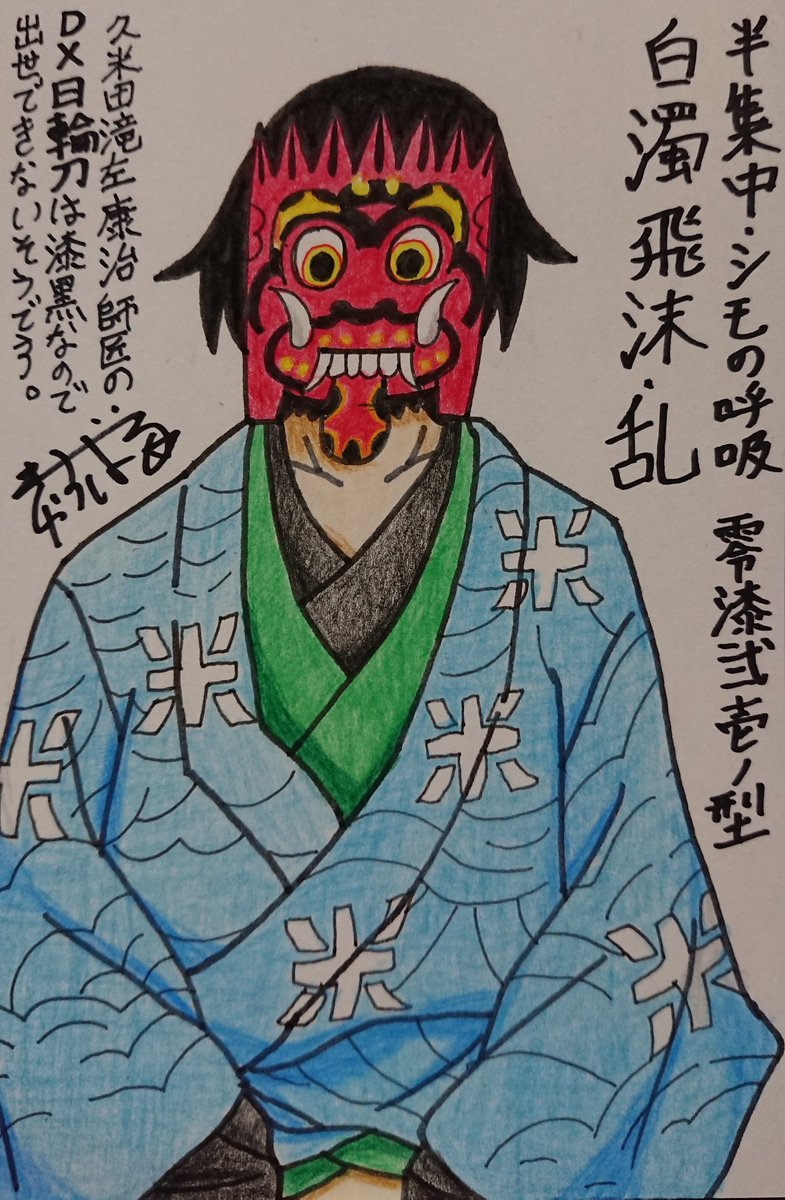 半集中・シモの呼吸 零漆弐壱ノ型
白濁飛沫・乱
久米田滝左康治師匠の
DX日輪刀は漆黒なので
出世できないそうです。
米
米
米
米
米
米